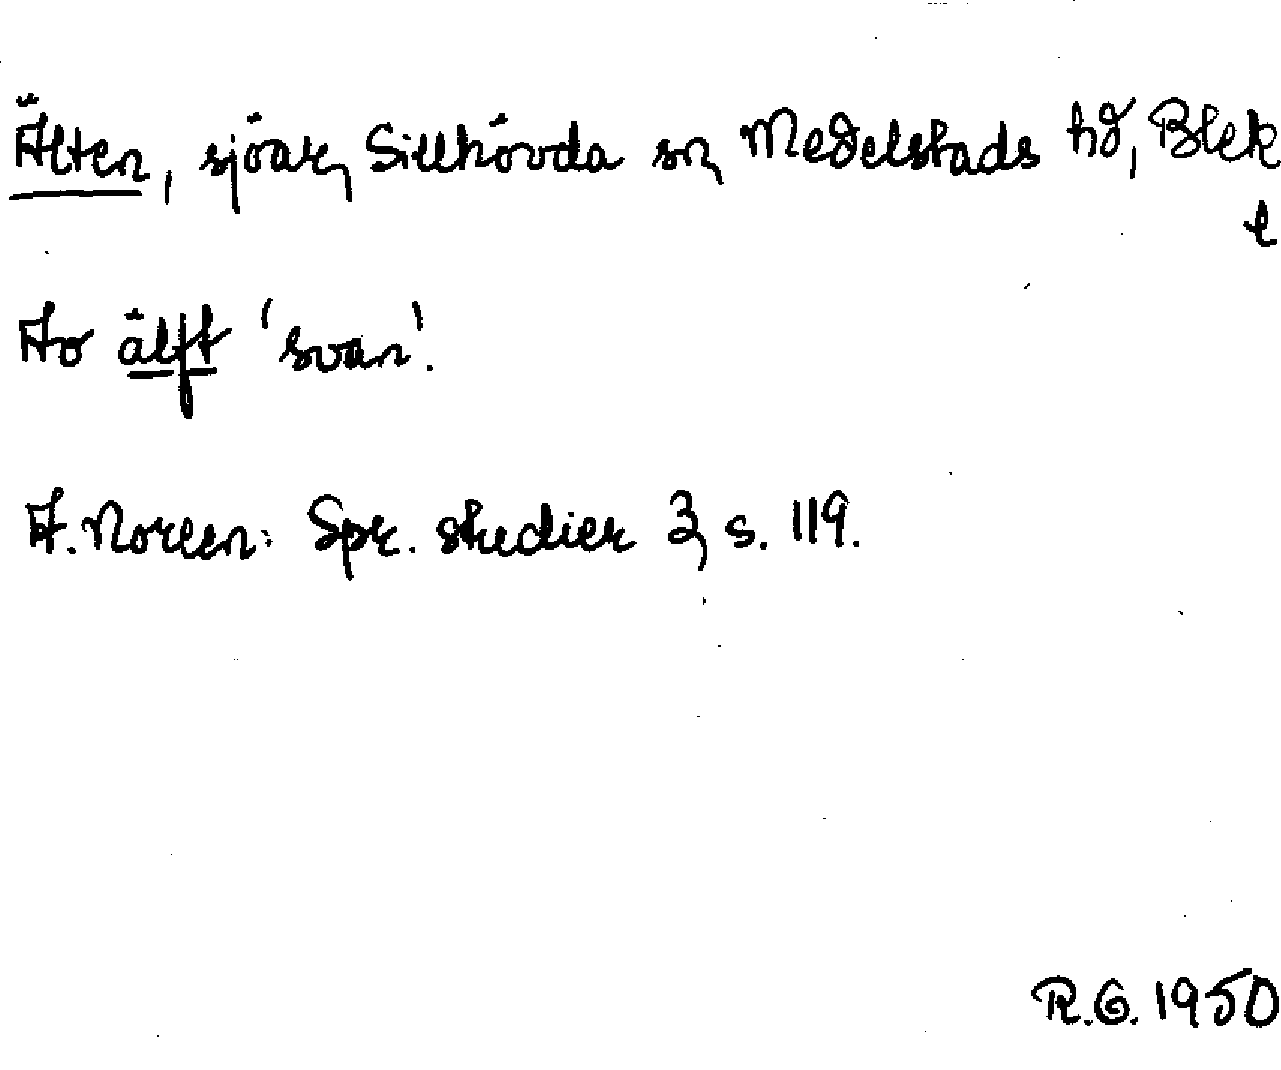 Älten, sjöar, Sillhövda sn, Medelstads hd, Blek
e
Av älft 'svan'.
A. Noreen: Spr. studier 3, s. 119.
R.G. 1950